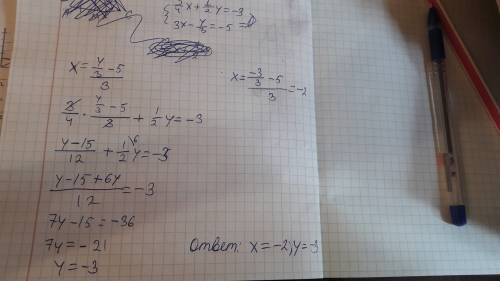 { 3/4 x + 1/2 y = -3
{ 3x - y/3 = -5
x = (y/3 - 5)/3
x = (-3/3 - 5)/3 = -2
3/4 · (y/3 - 5)/3 + 1/2 y = -3
(y - 15)/12 + 1/2 y = -3
(y - 15 + 6y)/12 = -3
7y - 15 = -36
7y = -21
y = -3
Ответ: x = -2; y = -3